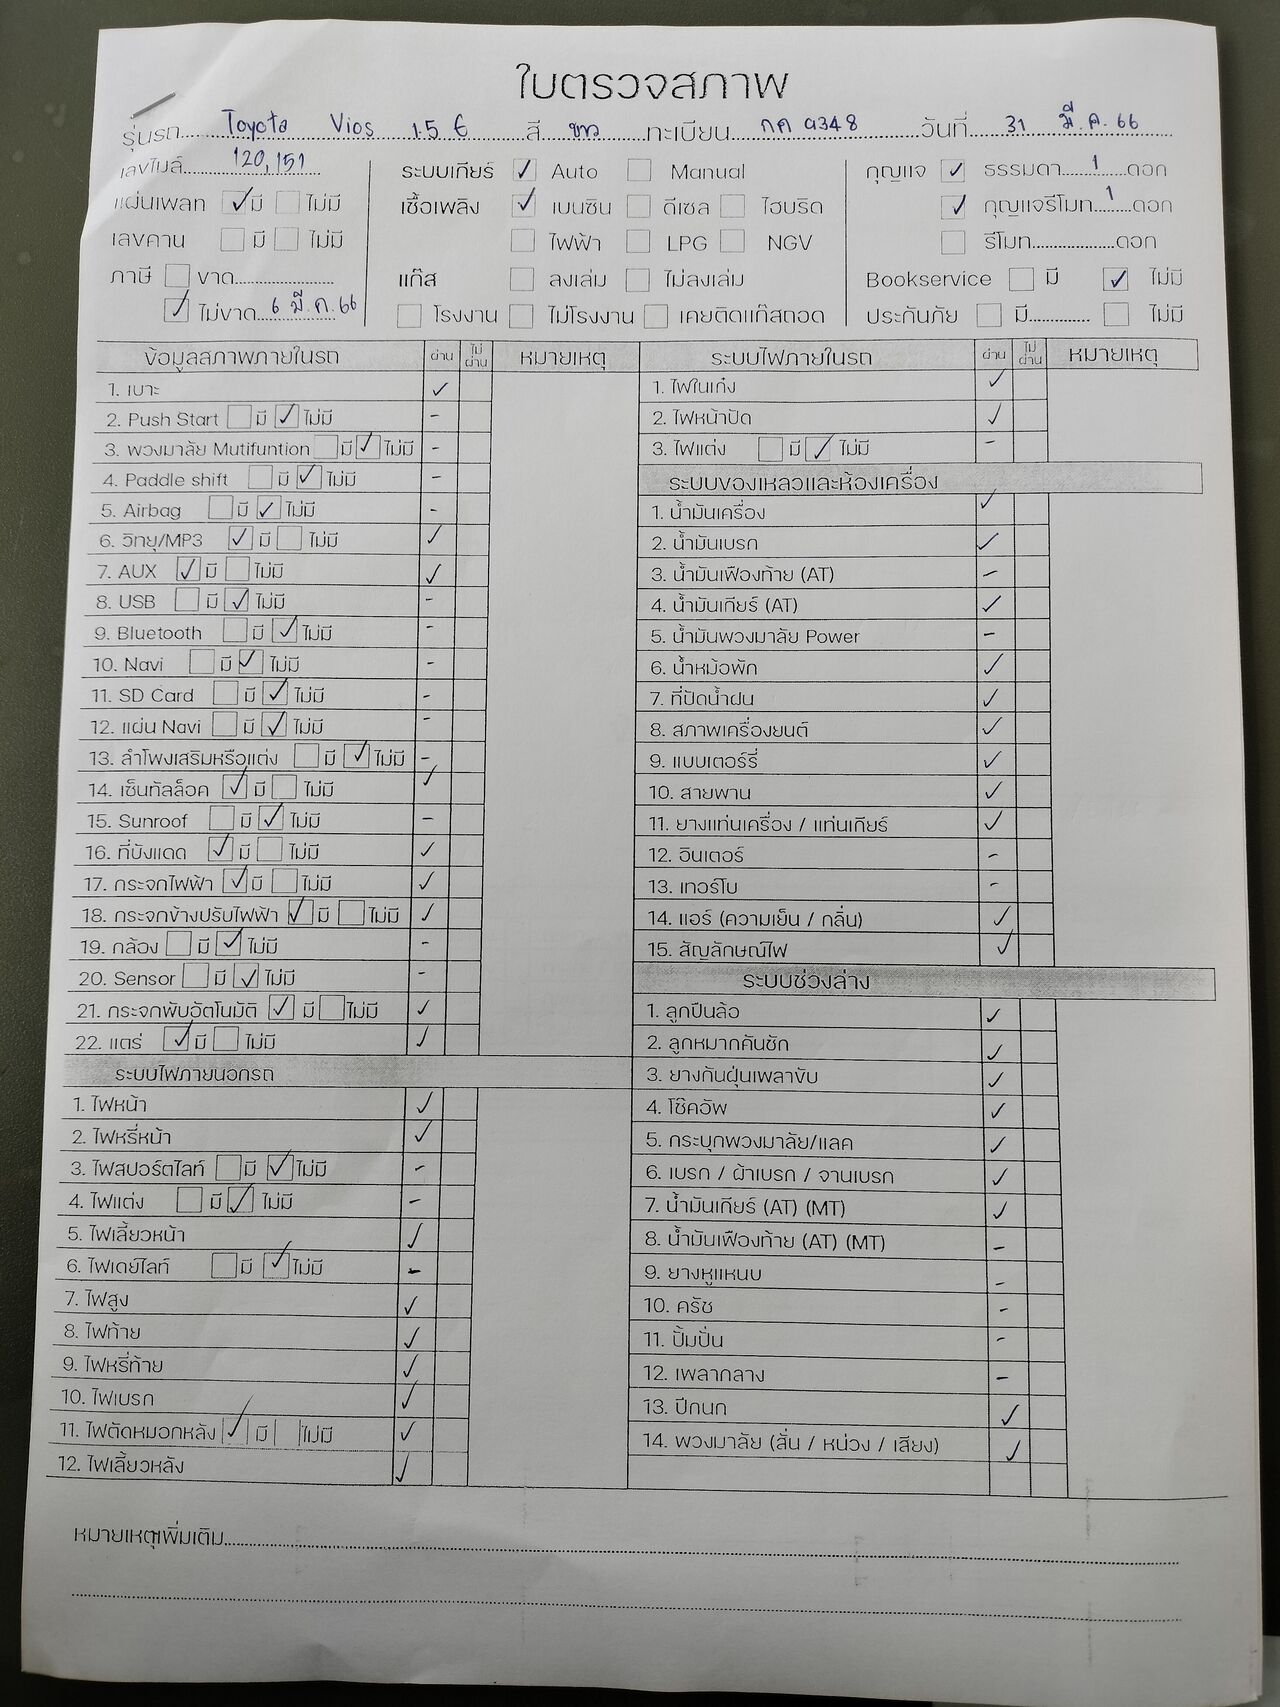 ใบตรวจสภาพ
รุ่นรถ Toyota Vios 1.5 E สี ขาว ทะเบียน กค 9348 วันที่ 31 มี.ค. 66
เลขไมล์ 120,151
แผ่นเพลท ✓ มี ไม่มี
เลขคาน มี ไม่มี
ภาษี ขาด
✓ ไม่ขาด 6 มี.ค. 66
ระบบเกียร์ ✓ Auto Manual
เชื้อเพลิง ✓ เบนซิน ดีเซล ไฮบริด
ไฟฟ้า LPG NGV
แก๊ส ลงเล่ม ไม่ลงเล่ม
โรงงาน ไม่โรงงาน เคยติดแก๊สถอด
กุญแจ ✓ ธรรมดา 1 ดอก
✓ กุญแจรีโมท 1 ดอก
รีโมท ดอก
Bookservice มี ✓ ไม่มี
ประกันภัย มี ไม่มี
ข้อมูลสภาพภายในรถ ผ่าน ไม่ผ่าน หมายเหตุ
1. เบาะ ✓
2. Push Start มี ✓ ไม่มี -
3. พวงมาลัย Mutifuntion มี ✓ ไม่มี -
4. Paddle shift มี ✓ ไม่มี -
5. Airbag มี ✓ ไม่มี -
6. วิทยุ/MP3 ✓ มี ไม่มี ✓
7. AUX ✓ มี ไม่มี ✓
8. USB มี ✓ ไม่มี -
9. Bluetooth มี ✓ ไม่มี -
10. Navi มี ✓ ไม่มี -
11. SD Card มี ✓ ไม่มี -
12. แผ่น Navi มี ✓ ไม่มี -
13. ลำโพงเสริมหรือแต่ง มี ✓ ไม่มี -
14. เซ็นทัลล็อค ✓ มี ไม่มี ✓
15. Sunroof มี ✓ ไม่มี -
16. ที่บังแดด ✓ มี ไม่มี ✓
17. กระจกไฟฟ้า ✓ มี ไม่มี ✓
18. กระจกข้างปรับไฟฟ้า ✓ มี ไม่มี ✓
19. กล้อง มี ✓ ไม่มี -
20. Sensor มี ✓ ไม่มี -
21. กระจกพับอัตโนมัติ ✓ มี ไม่มี ✓
22. แตร่ ✓ มี ไม่มี ✓
ระบบไฟภายนอกรถ
1. ไฟหน้า ✓
2. ไฟหรี่หน้า ✓
3. ไฟสปอร์ตไลท์ มี ✓ ไม่มี -
4. ไฟแต่ง มี ✓ ไม่มี -
5. ไฟเลี้ยวหน้า ✓
6. ไฟเดย์ไลท์ มี ✓ ไม่มี -
7. ไฟสูง ✓
8. ไฟท้าย ✓
9. ไฟหรี่ท้าย ✓
10. ไฟเบรก ✓
11. ไฟตัดหมอกหลัง ✓ มี ไม่มี ✓
12. ไฟเลี้ยวหลัง ✓
ระบบไฟภายในรถ ผ่าน ไม่ผ่าน หมายเหตุ
1. ไฟในเก๋ง ✓
2. ไฟหน้าปัด ✓
3. ไฟแต่ง มี ✓ ไม่มี -
ระบบของเหลวและห้องเครื่อง
1. น้ำมันเครื่อง ✓
2. น้ำมันเบรก ✓
3. น้ำมันเฟืองท้าย (AT) -
4. น้ำมันเกียร์ (AT) ✓
5. น้ำมันพวงมาลัย Power -
6. น้ำหม้อพัก ✓
7. ที่ปัดน้ำฝน ✓
8. สภาพเครื่องยนต์ ✓
9. แบบเตอร์รี่ ✓
10. สายพาน ✓
11. ยางแท่นเครื่อง / แท่นเกียร์ ✓
12. อินเตอร์ -
13. เทอร์โบ -
14. แอร์ (ความเย็น / กลิ่น) ✓
15. สัญลักษณ์ไฟ ✓
ระบบช่วงล่าง
1. ลูกปืนล้อ ✓
2. ลูกหมากคันชัก ✓
3. ยางกันฝุ่นเพลาขับ ✓
4. โช๊คอัพ ✓
5. กระบุกพวงมาลัย/แลค ✓
6. เบรก / ผ้าเบรก / จานเบรก ✓
7. น้ำมันเกียร์ (AT) (MT) ✓
8. น้ำมันเฟืองท้าย (AT) (MT) -
9. ยางหูแหนบ -
10. ครัช -
11. ปั้มปั่น -
12. เพลากลาง -
13. ปีกนก ✓
14. พวงมาลัย (สั่น / หน่วง / เสียง) ✓
หมายเหตุเพิ่มเติม